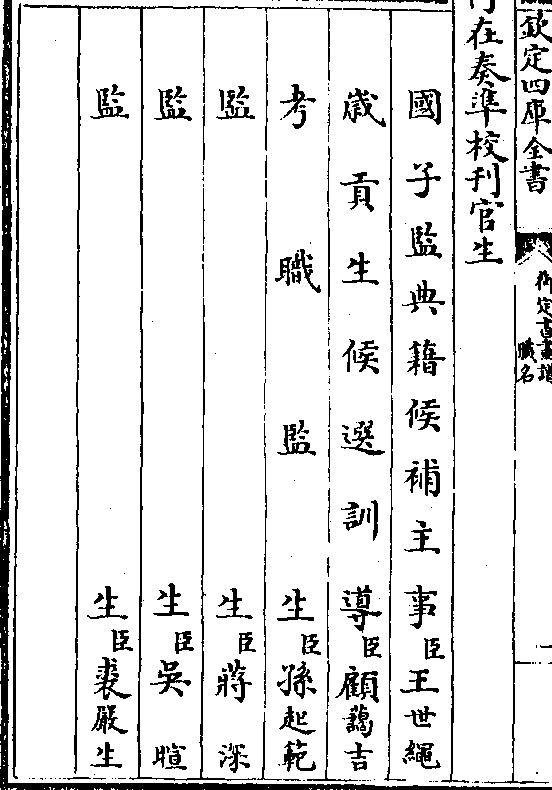 欽定四庫全書
御定書畫譜
職名
行在奏準校刊官生
國子監典籍候補主事臣王世繩
歲貢生候選訓導臣顧藹吉
考職監生臣孫起範
監生臣蔣深
監生臣吳暄
監生臣裘嚴生